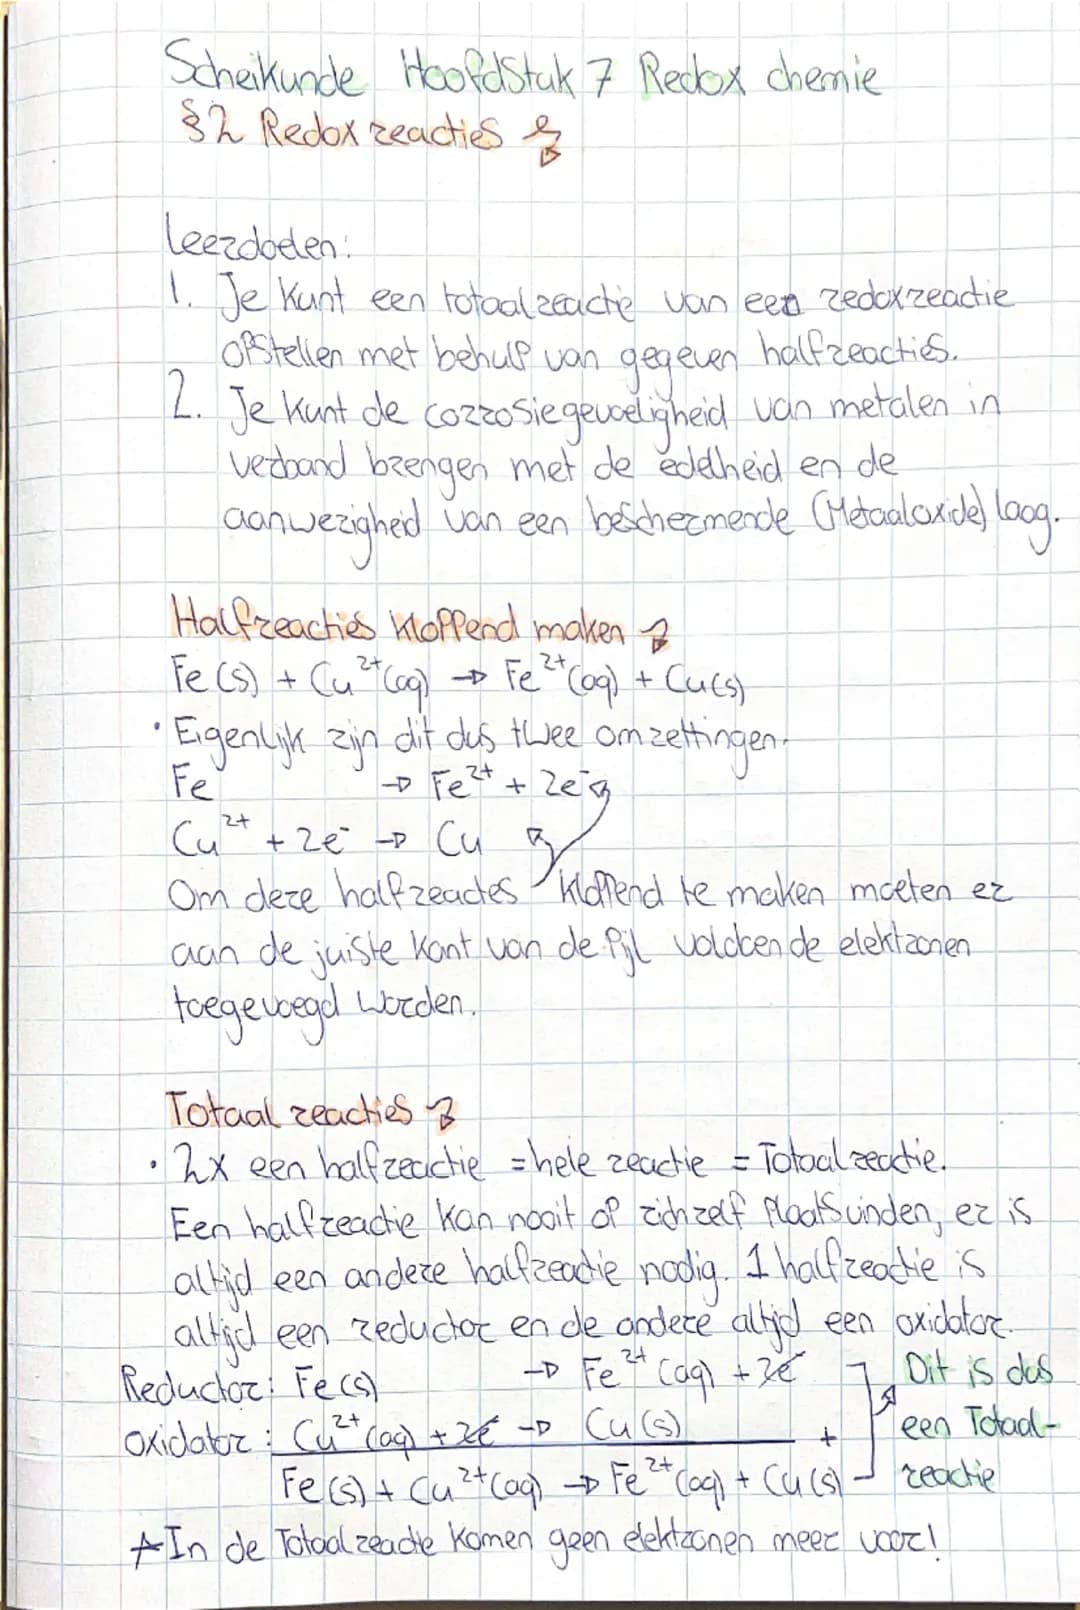 Scheikunde Hoofdstuk 7 Redox chemie
§2 Redox reacties
Leerdoelen:
1. Je kunt een totaalreactie van een redoxreactie
opstellen met behulp van gegeven halfreacties.
2. Je kunt de corrosiegevoeligheid van metalen in
verband brengen met de edelheid en de
aanwezigheid van een beschermende (Metaaloxide) laag.
Halfreacties kloppend maken
Fe (s) + Cu²⁺(aq) → Fe²⁺(aq) + Cu(s)
• Eigenlijk zijn dit dus twee omzettingen.
Fe → Fe²⁺ + 2e⁻
Cu²⁺ + 2e⁻ → Cu
Om deze halfreacties kloppend te maken moeten er
aan de juiste kant van de pijl voldoende elektronen
toegevoegd worden.
Totaal reacties
• 2x een halfreactie = hele reactie = Totaalreactie.
Een halfreactie kan nooit op zichzelf plaatsvinden, er is
altijd een andere halfreactie nodig. 1 halfreactie is
altijd een reductor en de andere altijd een oxidator.
Reductor: Fe(s) → Fe²⁺(aq) + 2e⁻
oxidator: Cu²⁺(aq) + 2e⁻ → Cu(s) +
Fe(s) + Cu²⁺(aq) → Fe²⁺(aq) + Cu(s)
Dit is dus
een Totaal-
reactie
* In de Totaalreactie komen geen elektronen meer voor!